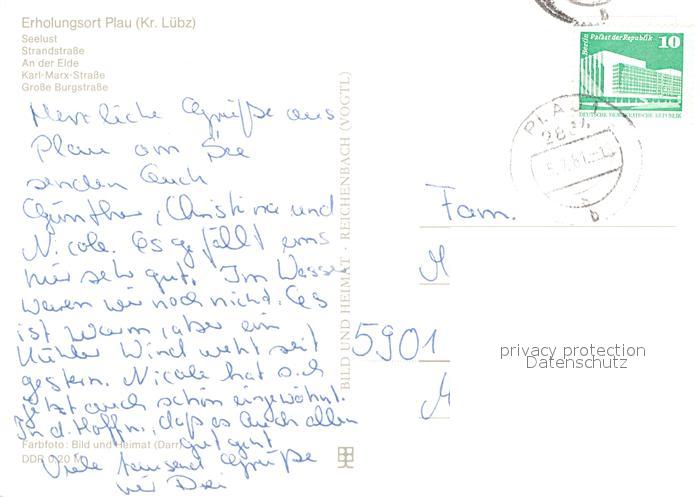 Erholungsort Plau (Kr. Lübz)
Seelust
Strandstraße
An der Elde
Karl-Marx-Straße
Große Burgstraße
Herzliche Grüße aus
Plau am See
senden Euch
Günther, Christina und
Nicole. Es gefällt uns
hier sehr gut. Im Wasser
waren wir noch nicht. Es
ist warm, aber ein
kühler Wind weht seit
gestern. Nicole hat sich
jetzt auch schön eingewöhnt.
In d. Hoffn., daß es Euch allen
gut geht
Viele tausend Grüße
wir Drei
Farbfoto: Bild und Heimat (Darr)
DDR 0,20 M
BILD UND HEIMAT · REICHENBACH (VOGTL)
Berlin Palast der Republik 10
DEUTSCHE DEMOKRATISCHE REPUBLIK
PLAU
b
Fam.
M
5901
M
privacy protection
Datenschutz